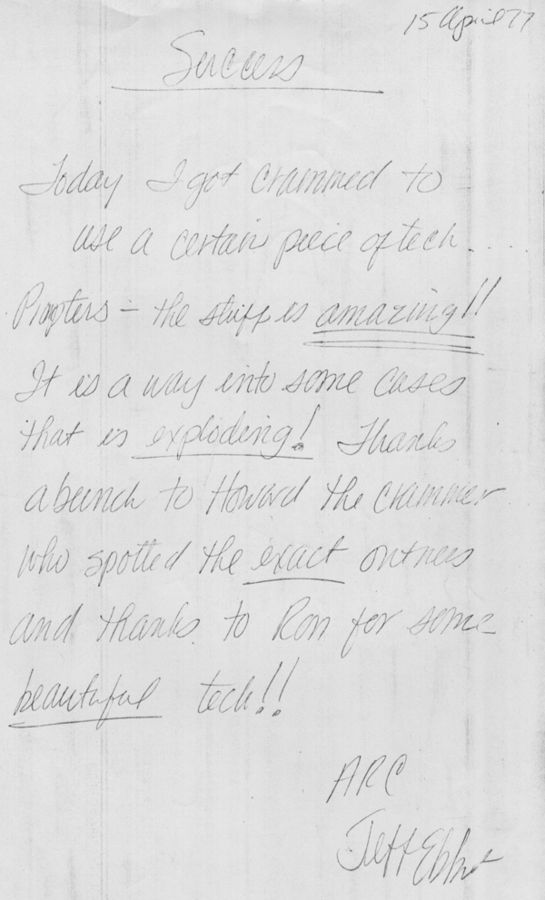 15 April 77
Success
Today I got crammed to
use a certain piece of tech....
– the stuff is amazing!!
It is a way into some cases
that is exploding! Thanks
a bunch to Howard the crammer
who spotted the exact outness
and thanks to Ron for some
beautiful tech!!
ARC
Jeff